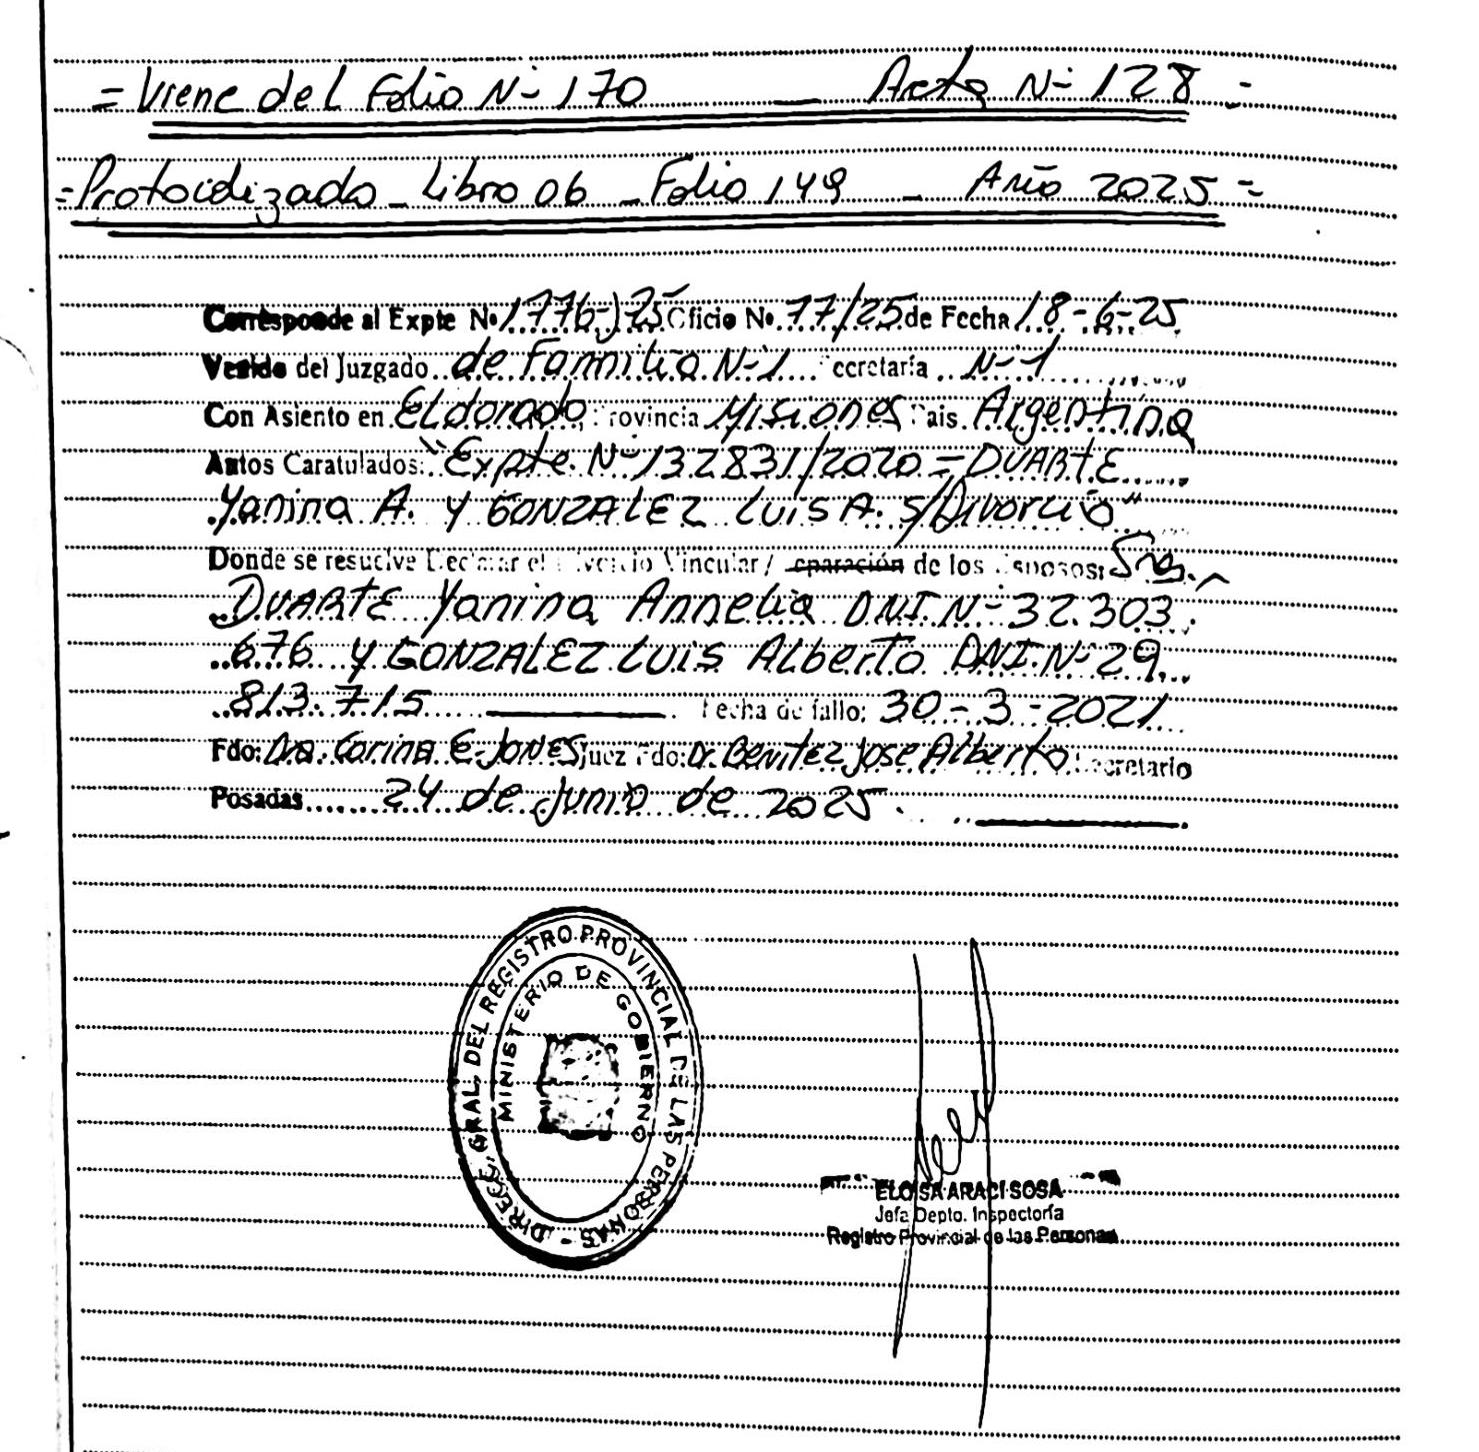 = Viene del Folio Nº 170 — Acta Nº 128 =
= Protocolizado - Libro 06 - Folio 149 - Año 2025 =
Corresponde al Expte Nº 1776-J-25 Oficio Nº 77/25 de Fecha 18-6-25
Venido del Juzgado de Familia Nº 1 Secretaría Nº 1
Con Asiento en Eldorado Provincia Misiones Pais Argentina
Autos Caratulados: "Expte. Nº 132831/2020 = DUARTE
Yanina A. Y GONZALEZ LUIS A. S/Divorcio"
Donde se resuelve Declarar el Divorcio Vincular / Separación de los Esposos:
DUARTE Yanina Annelia DNI Nº 32.303.
676 y GONZALEZ LUIS Alberto DNI Nº 29.
813.715 Fecha de fallo: 30-3-2021
Fdo: Dra. Corina E. Jones Juez Fdo: Dr. Benitez Jose Alberto Secretario
Posadas 24 de Junio de 2025.
DIRECC. GRAL. DEL REGISTRO PROVINCIAL DE LAS PERSONAS -
MINISTERIO DE GOBIERNO
ELOISA ARACI SOSA
Jefa Depto. Inspectoría
Registro Provincial de las Personas